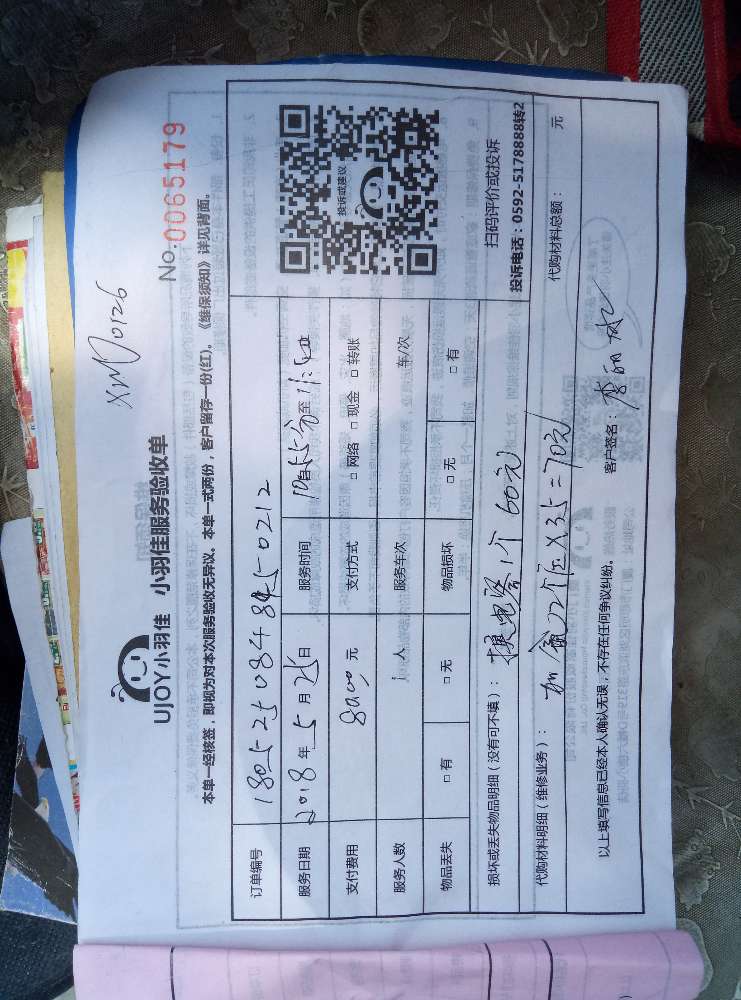 XM70126
UJOY小羽佳 小羽佳服务验收单
No:0065179
本单一经核签，即视为对本次服务验收无异议。本单一式两份，客户留存一份(红)。《维保须知》详见背面。
订单编号 180525084845 0212
投诉或建议
服务日期 2018 年 5 月 25 日 服务时间 10 55分 至
支付费用 元 支付方式 □ 网络 □ 现金 □ 转账
服务人数 1 人 服务车次 车/次
物品丢失 □ 有 □ 无 物品损坏 □ 无 □ 有
扫码评价或投诉
投诉电话：0592-5178888转2
损坏或丢失物品明细（没有可不填）： 换电容1个 60元
代购材料明细（维修业务）： 加氟2个压X35=70元 代购材料总额： 元
以上填写信息已经本人确认无误，不存在任何争议纠纷。 客户签名：